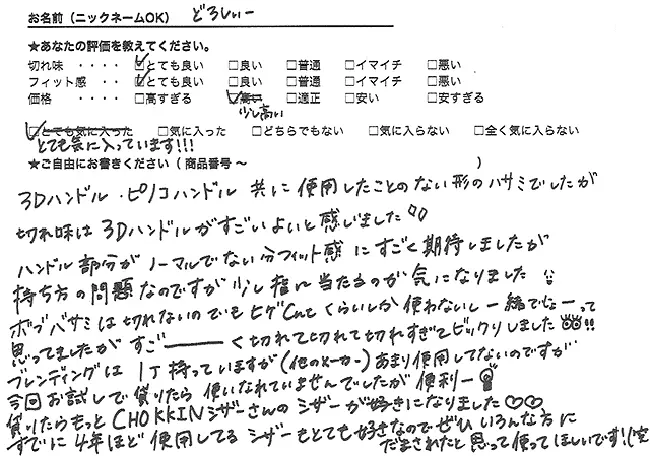 お名前（ニックネームOK） どろしぃー
★あなたの評価を教えてください。
切れ味 ････ ☑とても良い □良い □普通 □イマイチ □悪い
フィット感 ････ ☑とても良い □良い □普通 □イマイチ □悪い
価格 ････ □高すぎる ☑高い □適正 □安い □安すぎる
少し高い
☑とても気に入った □気に入った □どちらでもない □気に入らない □全く気に入らない
とても気に入っています!!!
★ご自由にお書きください（ 商品番号～ ）
3Dハンドル・ピノコハンドル 共に 使用したことのない形のハサミでしたが
切れ味は 3Dハンドルがすごいよいと感じました
ハンドル部分が ノーマルでない分フィット感 にすごく期待しましたが
持ち方の問題なのですが 少し指に当たるのが気になりました
ボブバサミは切れないのでも ヒゲCutくらいしか 使わないし 一緒でしょーって
思ってましたが すご―――く切れて切れて切れすぎてビックリしました!!
ブレンディングは 1丁持っていますが(他のメーカー)あまり使用してないのですが
今回お試しで借りたら 使いなれていませんでしたが 便利ー
借りたらもっと CHOKKINシザーさんの シザーが好きになりました♡♡
すでに4年ほど使用してる シザーもとても好きなのでぜひ いろんな方に
だまされたと思って使ってほしいです!(笑